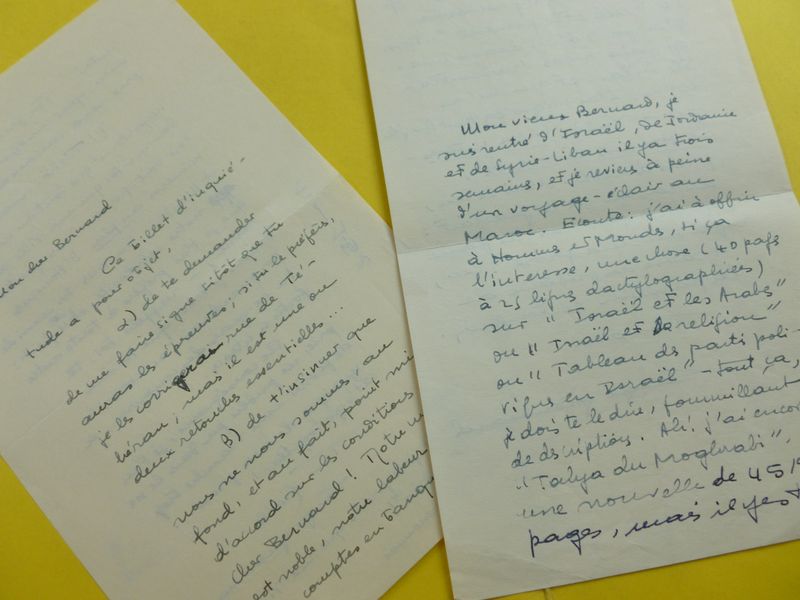 mon cher Bernard
Ce billet d'inquié-
tude a pour objet,
α) de te demander
de me faire signe sitôt que tu
auras les épreuves; si tu le préfères,
je les corrigerai rue de Té-
héran; mais il est une ou
deux retouches essentielles...
β) de t'insinuer que
nous ne nous sommes, au
fond, et au fait, point mi
d'accord sur les conditions
cher Bernard! Notre
est noble, notre labeur
comptes en
Mon vieux Bernard, je
suis rentré d'Israël, de Jordanie
et de Syrie-Liban il y a trois
semaines, et je reviens à peine
d'un voyage-éclair au
Maroc. Ecoute: j'ai à offrir
à Hommes et Mondes, si ça
l'intéresse, une chose (40 pages
à 25 lignes dactylographiées)
sur "Israël et les Arabes"
ou "Israël et la religion"
ou "Tableau des partis poli-
tiques en Israël" - tout ça,
je dois te le dire, fourmillant
de descriptions. Ah! j'ai encore
"Tahya du Moghrabi",
une nouvelle de 45
pages, mais il y est